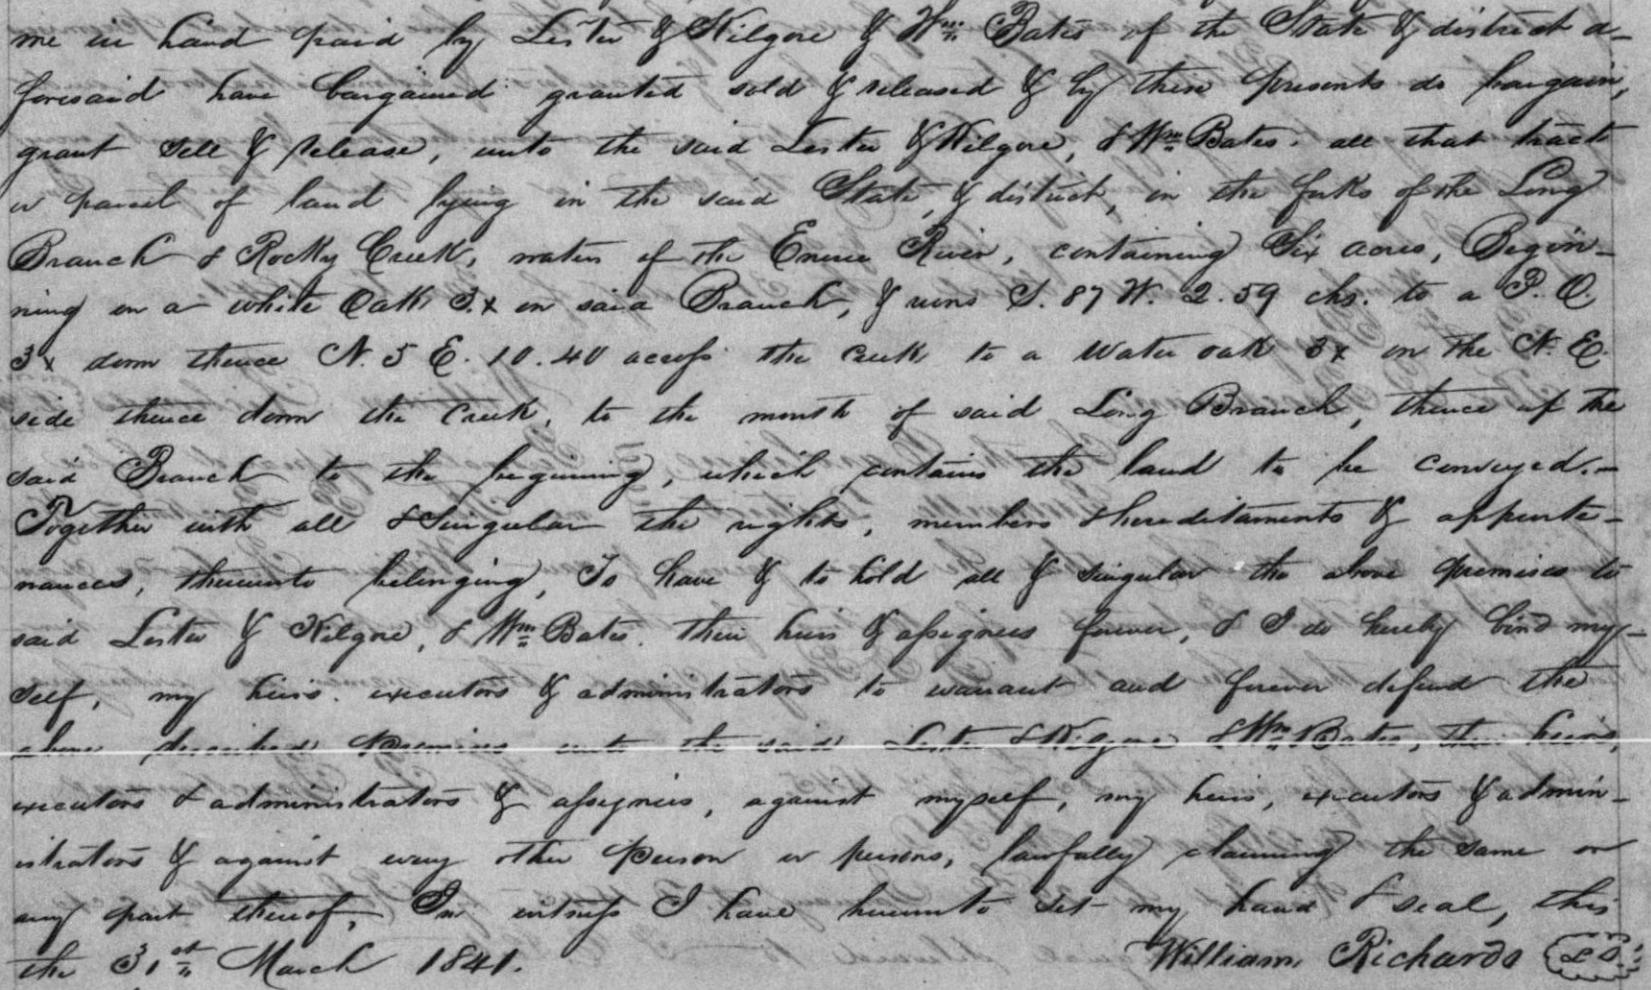 me in hand paid by Lester & Kilgore & Wm Bates of the State & district a-
foresaid have bargained granted sold & released & by these presents do bargain,
grant sell & release, unto the said Lester & Kilgore, & Wm Bates. all that tract
or parcel of land lying in the said State, & district, in the forks of the Long
Branch & Rocky Creek, waters of the Enoree River, containing Six acres, Begin-
ning on a white Oak 3x on said Branch, & runs S. 87 W. 2.59 chs. to a P. O.
3x down thence N. 5 E. 10.40 across the creek to a Water oak 3x on the N. E.
side thence down the Creek, to the mouth of said Long Branch, thence up the
said Branch to the begining, which contains the land to be conveyed.-
Together with all & Singular the rights, members & hereditaments & appurte-
nances, thereunto belonging, To have & to hold all & singular the above premises to
said Lester & Kilgore, & Wm Bates. their heirs & assignees forever, & I do hereby bind my-
self, my heirs. executors & administrators to warrant and forever defend the
above described premises unto the said Lester & Kilgore & Wm Bates, their heirs,
executors & administrators & assignees, against myself, my heirs, executors & admin-
istrators & against every other person or persons, lawfully claiming the same or
any part thereof, In witness I have hereunto set my hand & seal, this
the 31st March 1841. William Richards LS